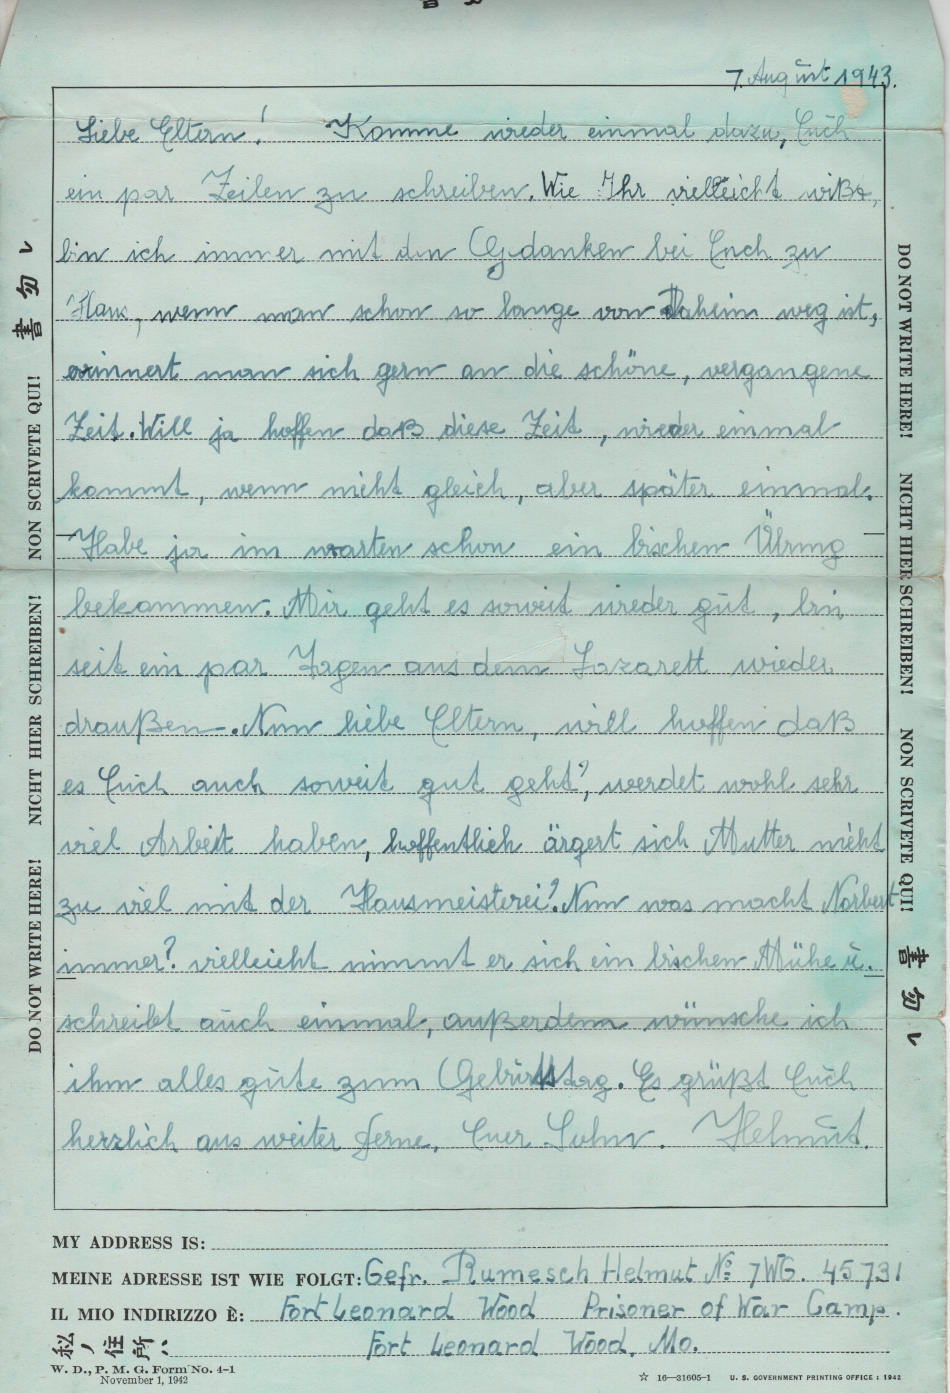 7. August 1943.
Liebe Eltern! Komme wieder einmal dazu, Euch
ein par Zeilen zu schreiben. Wie Ihr vielleicht wißt,
bin ich immer mit den Gedanken bei Euch zu
Haus, wenn man schon so lange von Daheim weg ist,
erinnert man sich gern an die schöne, vergangene
Zeit. Will ja hoffen daß diese Zeit, wieder einmal
kommt, wenn nicht gleich, aber später einmal.
Habe ja im warten schon ein bischen Übung
bekommen. Mir geht es soweit wieder gut, bin
seit ein par Tagen aus dem Lazarett wieder
draußen. Nun liebe Eltern, will hoffen daß
es Euch auch soweit gut geht?, werdet wohl sehr
viel Arbeit haben, hoffentlich ärgert sich Mutter nicht
zu viel mit der Hausmeisterei? Nun was macht Norbert
immer? vielleicht nimmt er sich ein bischen Mühe u.
schreibt auch einmal, außerdem wünsche ich
ihm alles gute zum Geburtstag. Es grüßt Euch
herzlich aus weiter ferne, Euer Sohn. Helmut.
DO NOT WRITE HERE! NICHT HIER SCHREIBEN! NON SCRIVETE QUI! 書勿レ
DO NOT WRITE HERE! NICHT HIER SCHREIBEN! NON SCRIVETE QUI! 書勿レ
MY ADDRESS IS:
MEINE ADRESSE IST WIE FOLGT: Gefr. Rumesch Helmut No 7WG. 45731
IL MIO INDIRIZZO È: Fort Leonard Wood Prisoner of War Camp.
私ノ住所: Fort Leonard Wood, Mo.
W. D., P. M. G. Form No. 4-1
November 1, 1942
☆ 16—31605-1 U. S. GOVERNMENT PRINTING OFFICE : 1942